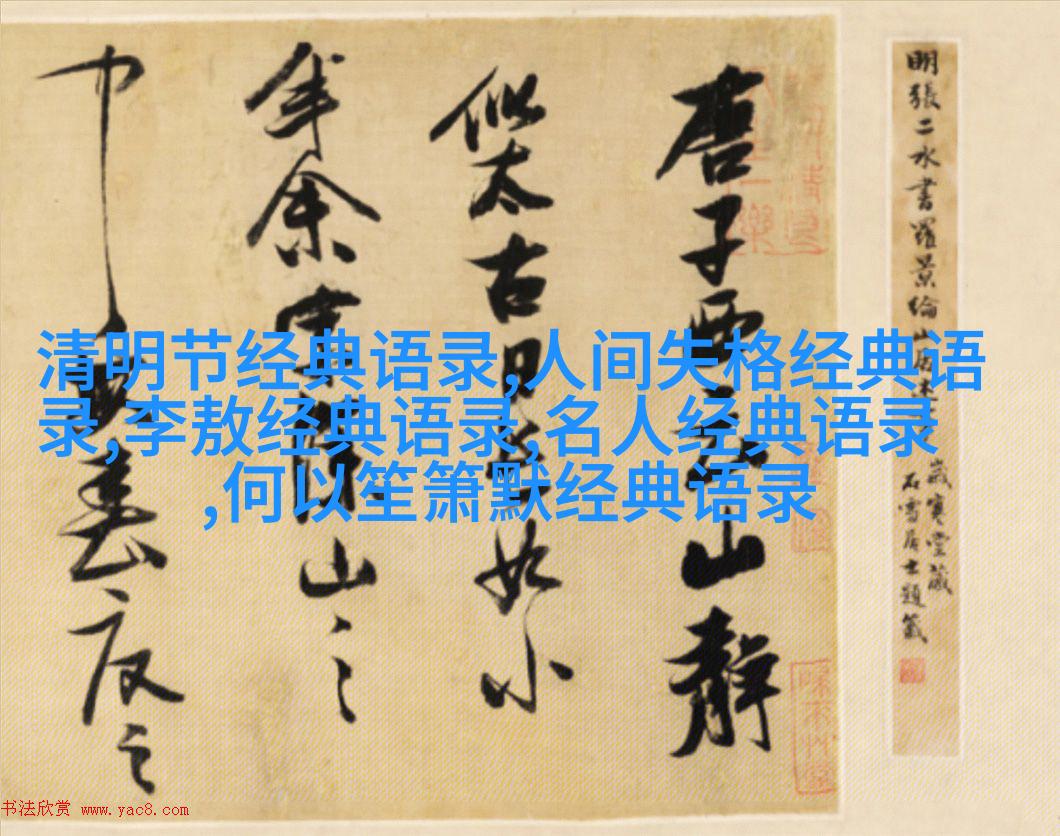 清明节经典语录,人间失格经典语
录,李敖经典语录,名人经典语录
,何以笙箫默经典语录
唐子西云山静
似太古日长如小
年余家深山之
中每春夏之
明张二水书罗景纶山居述
岁寒堂藏
石雪居士题签
书法欣赏 www.yac8.com